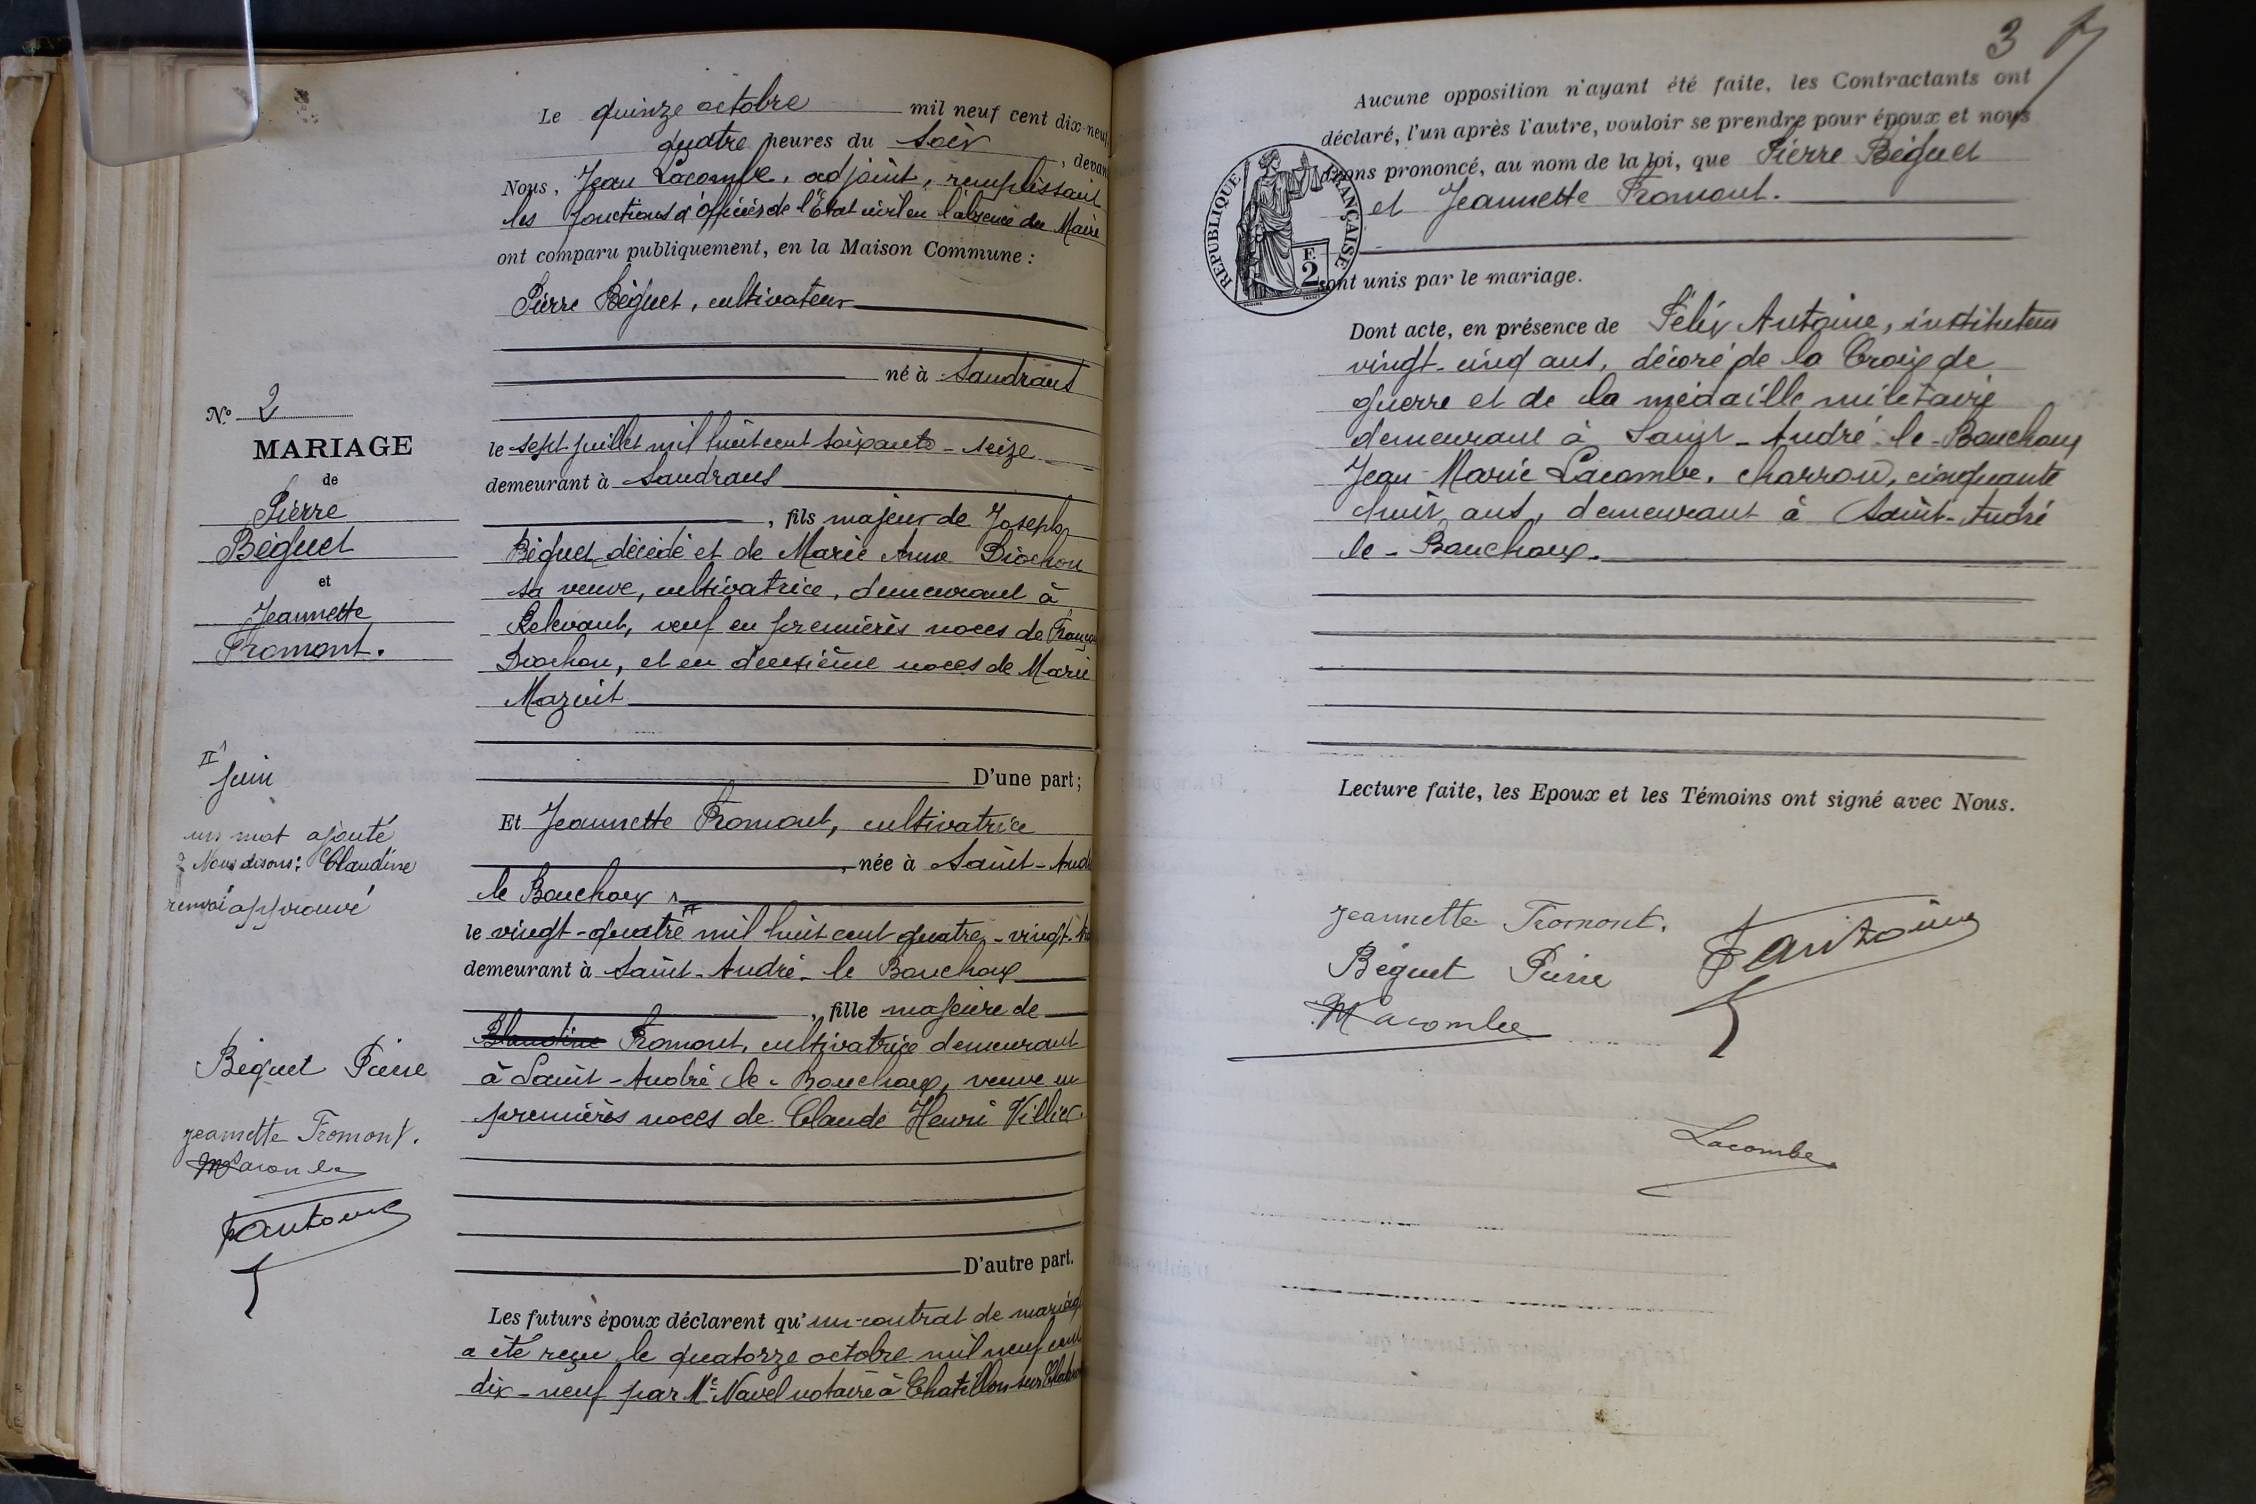 Le quinze octobre mil neuf cent dix-neuf
quatre heures du soir, devant
Nous, Jean Lacombe, adjoint, remplissant
les fonctions d'officier de l'État civil en l'absence du Maire
ont comparu publiquement, en la Maison Commune :
Pierre Béguet, cultivateur
né à Sandrans
le sept juillet mil huit cent soixante-seize
demeurant à Sandrans
, fils majeur de Joseph
Béguet décédé et de Marie Anne Diochon
sa veuve, cultivatrice, demeurant à
Relevant, veuf en premières noces de
Diochon, et en deuxième noces de Marie
Mazuit
D'une part;
Et Jeannette Fromont, cultivatrice
, née à Saint-André
le Bouchoux
le vingt-quatre mil huit cent quatre-vingt-
demeurant à Saint-André-le Bouchoux
, fille majeure de
Blandine Fromont, cultivatrice demeurant
à Saint-André-le-Bouchoux, veuve en
premières noces de Claude Henri Villier.
D'autre part.
Les futurs époux déclarent qu'un contrat de mariage
a été reçu le quatorze octobre mil neuf cent
dix-neuf par Me Navel notaire à Chatillon sur Chalaronne
No 2
MARIAGE
de
Pierre
Béguet
et
Jeannette
Fromont.
II
juin
un mot ajouté
2 Nous disons: Claudine
renvoi approuvé
Béguet Pierre
Jeannette Fromont.
MLacombe
FAntoine
3
Aucune opposition n'ayant été faite, les Contractants ont
déclaré, l'un après l'autre, vouloir se prendre pour époux et nous
avons prononcé, au nom de la loi, que Pierre Béguet
et Jeannette Fromont.
sont unis par le mariage.
RÉPUBLIQUE FRANÇAISE
E
2
Dont acte, en présence de Félix Antoine, instituteur
vingt-cinq ans, décoré de la Croix de
guerre et de la médaille militaire
demeurant à Saint-André-le-Bouchoux
Jean-Marie Lacombe, charron, cinquante
huit ans, demeurant à Saint-André
le-Bouchoux.
Lecture faite, les Epoux et les Témoins ont signé avec Nous.
Jeannette Fromont.
FAntoine
Béguet Pierre
MLacombe
Lacombe